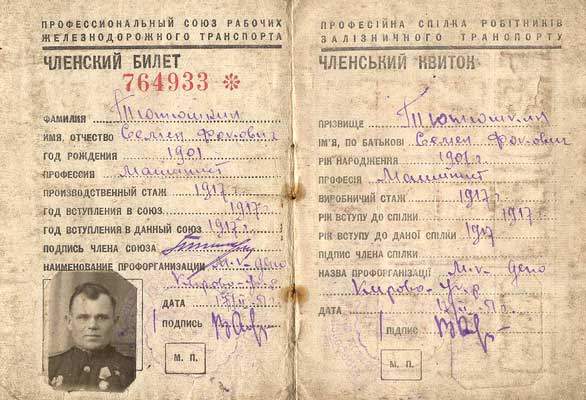 ПРОФЕССИОНАЛЬНЫЙ СОЮЗ РАБОЧИХ
ЖЕЛЕЗНОДОРОЖНОГО ТРАНСПОРТА
ЧЛЕНСКИЙ БИЛЕТ
764933 *
ФАМИЛИЯ Тютюшкин
ИМЯ, ОТЧЕСТВО Семен Фокович
ГОД РОЖДЕНИЯ 1901
ПРОФЕССИЯ Машинист
ПРОИЗВОДСТВЕННЫЙ СТАЖ 1917 г.
ГОД ВСТУПЛЕНИЯ В СОЮЗ 1917 г.
ГОД ВСТУПЛЕНИЯ В ДАННЫЙ СОЮЗ 1917 г.
ПОДПИСЬ ЧЛЕНА СОЮЗА
НАИМЕНОВАНИЕ ПРОФОРГАНИЗАЦИИ депо
ДАТА
ПОДПИСЬ
М. П.
ПРОФЕСІЙНА СПІЛКА РОБІТНИКІВ
ЗАЛІЗНИЧНОГО ТРАНСПОРТУ
ЧЛЕНСЬКИЙ КВИТОК
ПРІЗВИЩЕ Тютюшкин
ІМ'Я, ПО БАТЬКОВІ Семен Фокович
РІК НАРОДЖЕННЯ 1901 г.
ПРОФЕСІЯ Машинист
ВИРОБНИЧИЙ СТАЖ 1917 г.
РІК ВСТУПУ ДО СПІЛКИ 1917 г.
РІК ВСТУПУ ДО ДАНОЇ СПІЛКИ 1917 г.
ПІДПИС ЧЛЕНА СПІЛКИ
НАЗВА ПРОФОРГАНІЗАЦІЇ депо
ДАТА
ПІДПИС
М. П.